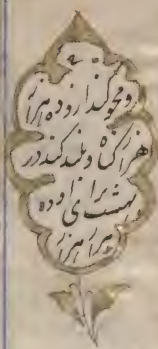 و محو گرداند از او ده هزار
هزار گناه و بلند کند در
بهشت برای او ده
هزار هزار